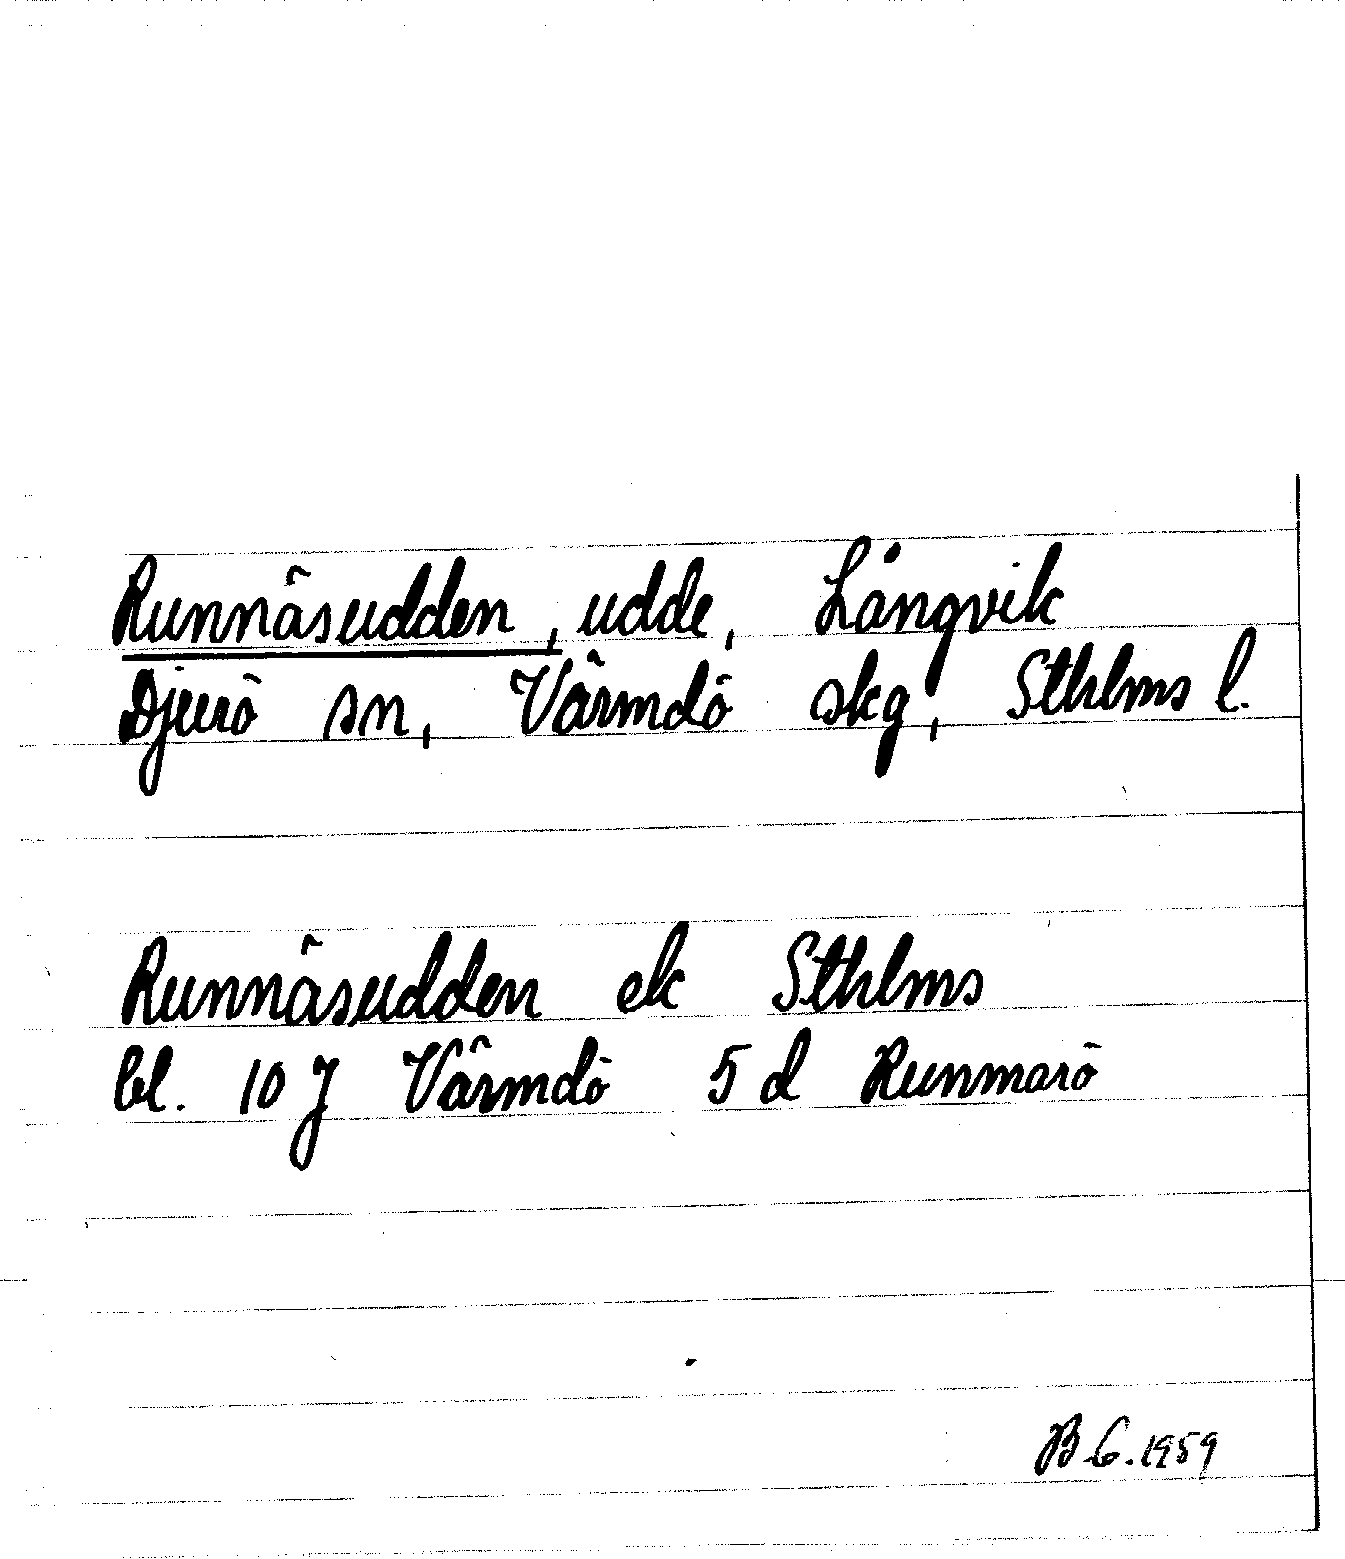 Runnäsudden, udde, Långvik
Djurö sn, Värmdö skg, Sthlms l.
Runnäsudden ek Sthlms
bl. 10 J Värmdö 5 d Runmarö
B G. 1959